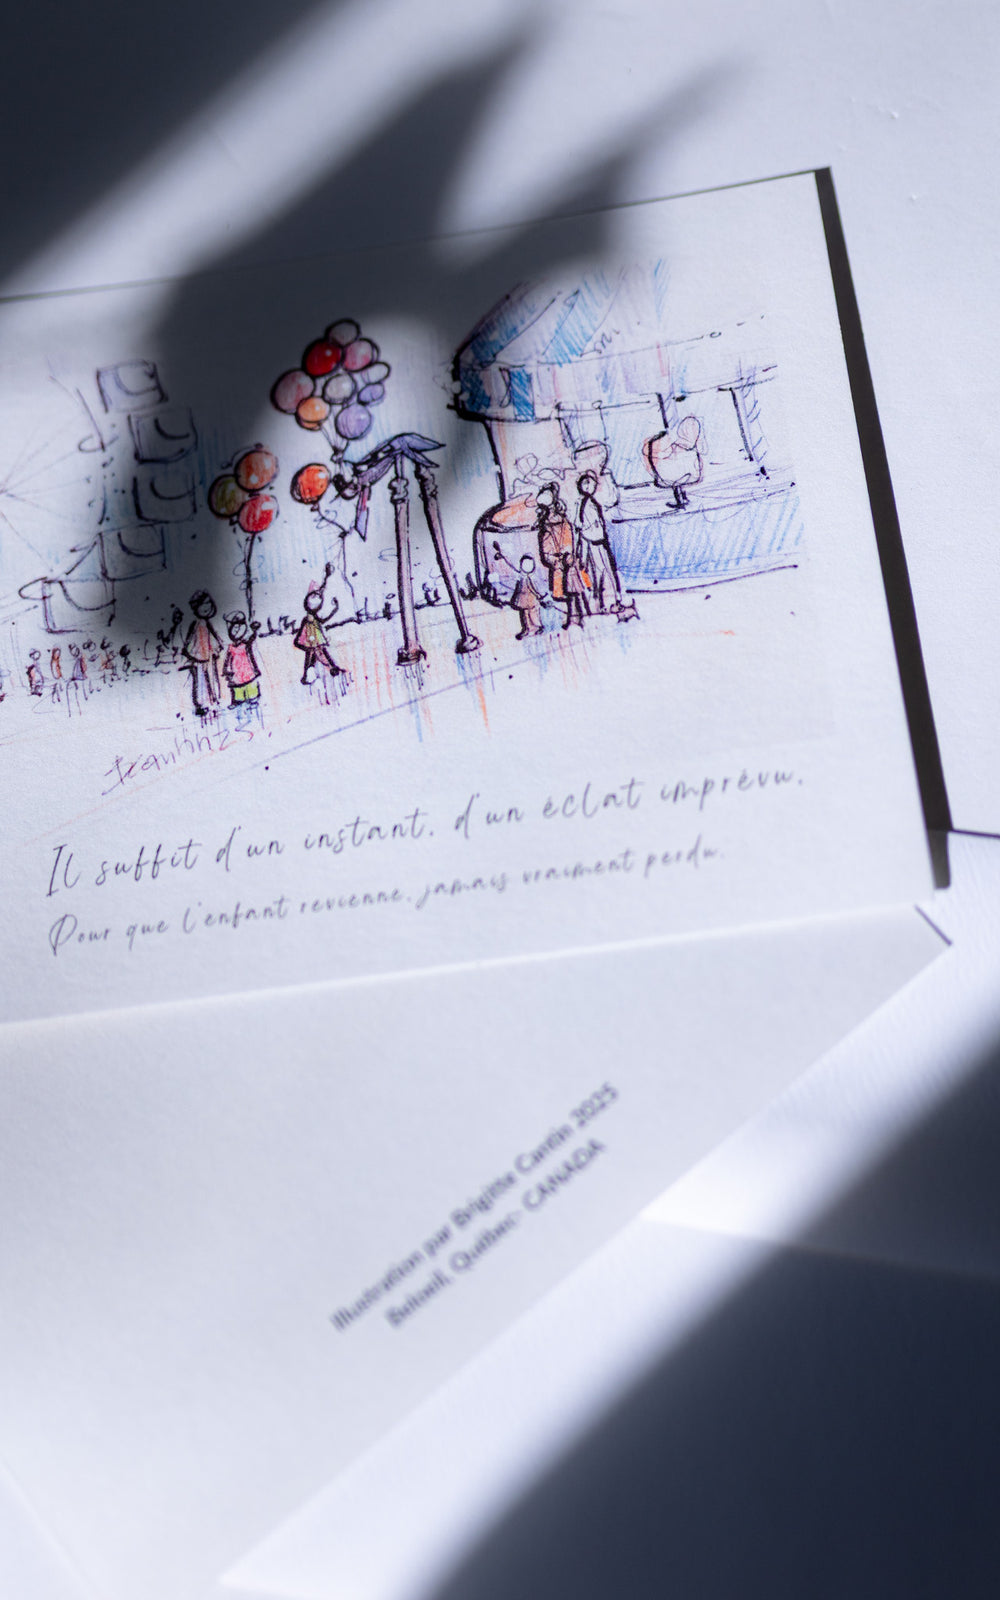 Il suffit d'un instant. d'un éclat imprévu.
Pour que l'enfant revienne. jamais vraiment perdu.
Illustration par Brigitte Cantin 2025
Beloeil, Québec- CANADA